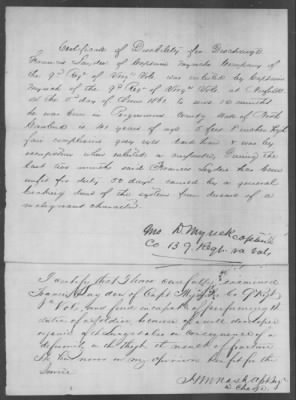 Certificate of Disability for Discharge
Francis Snyder of Captain Myrick Company of
the 9th Regt of Virga Vols. was enlisted by Captain
Myrick of the 9th Regt of Virga Vols. at
the 5th day of June 1861 to serve 12 months
he was born in Perquimans County State of North
Carolina is 41 years of age 5 feet inches high
fair complexion grey eyes hair & was by
occupation when enlisted a During the
last two months said Francis Snyder has been
unfit for duty 52 days caused by a general
breaking down of the system from disease of a
malignant character
Jno. D Myrick Captain
Co 13 9 Regt. va vols
I certify that I have carefully examined
Francis Snyder of Capt Co 9 Regt
Va Vol. and find incapable of performing the
duties of a soldier because of
in consequence of a
deformity in the thigh the result of fracture
He has never in my opinion been fit for the
Service
in Charge